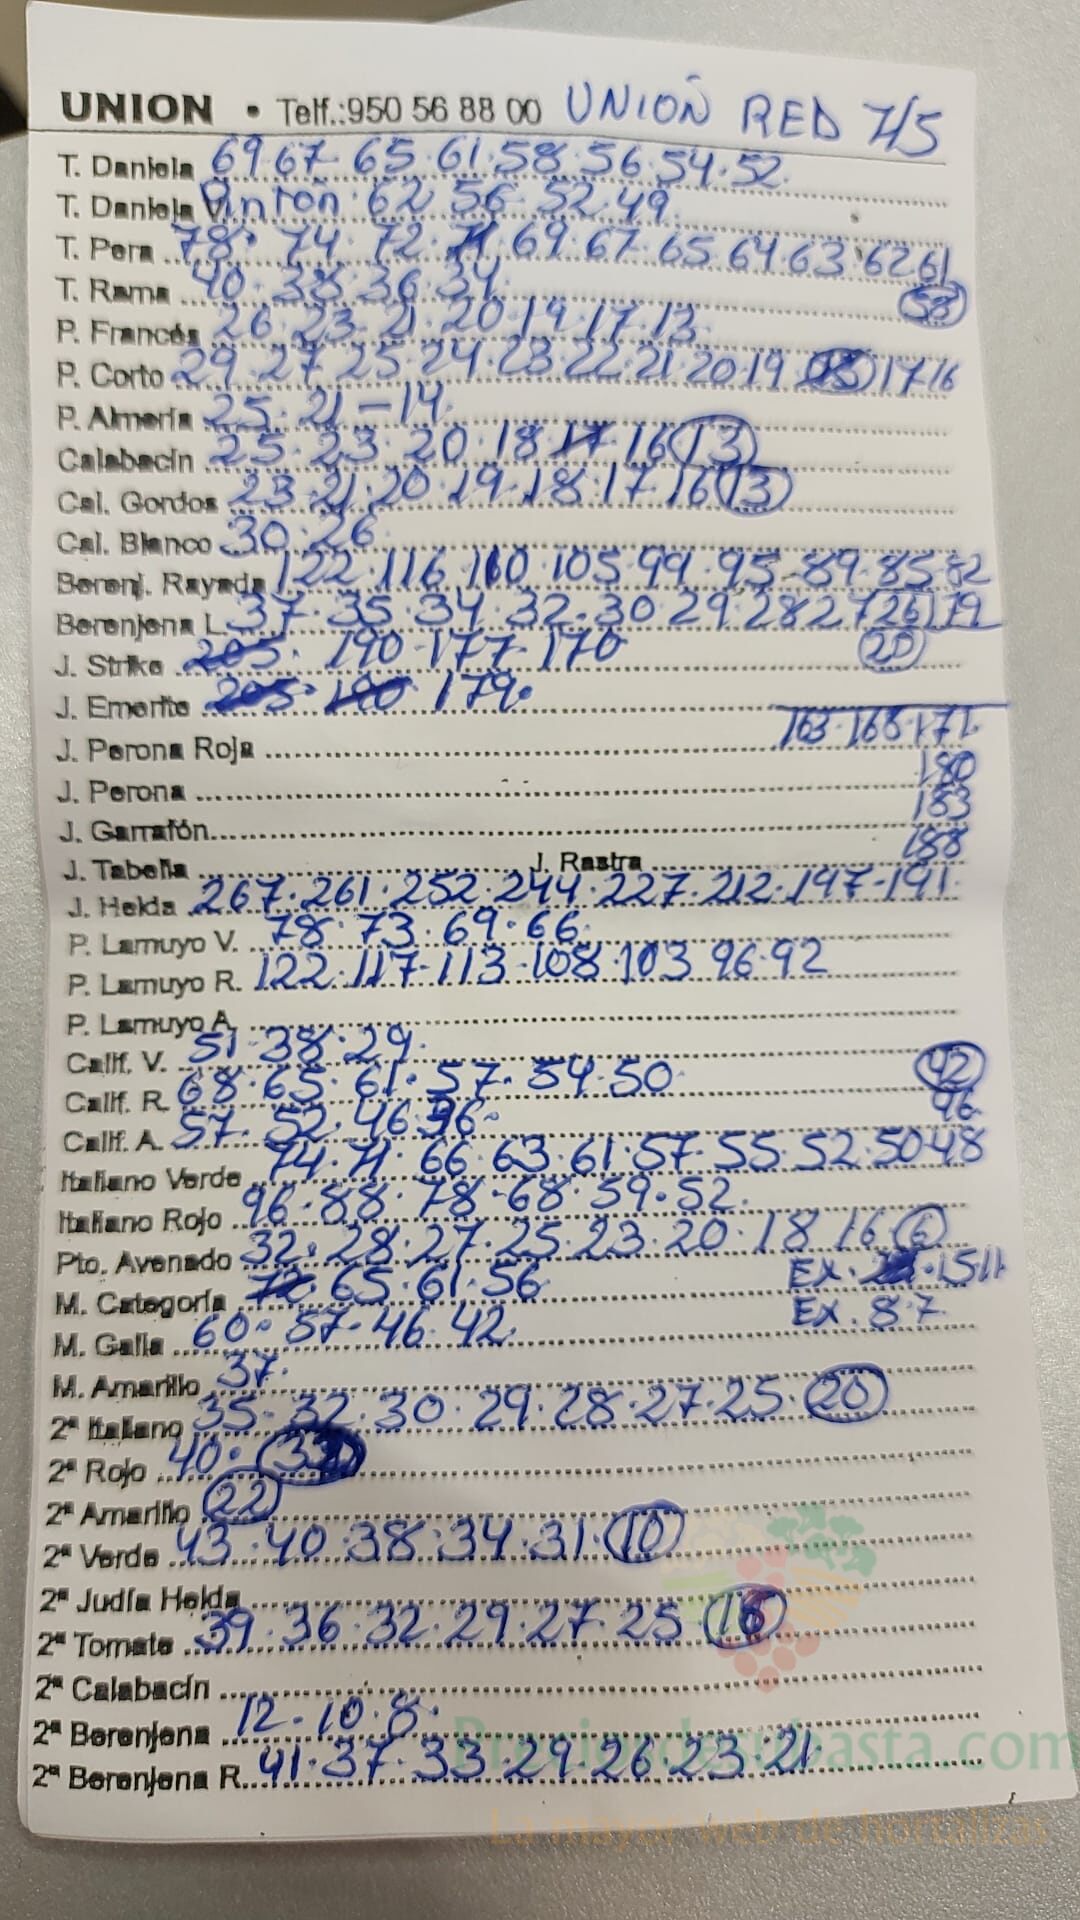 UNION • Telf.:950 56 88 00 UNION RED 7/5
T. Daniela 69·67·65·61·58·56·54·52
T. Daniela V. Pinton 62 56·52·49
T. Pera 78·74·72·71·69·67·65·64·63·62 61 (58)
T. Rama 40·38·36·34
P. Francés 26·23·21·20·19·17·13
P. Corto 29·27·25·24·23·22·21·20·19 17 16
P. Almería 25·21-14
Calabacín 25·23·20·18·17·16 (13)
Cal. Gordos 23·21·20·19·18·17·16 (13)
Cal. Blanco 30·26
Berenj. Rayada 122·116·110·105·99·95·89·85·82
Berenjena L. 37·35·34·32·30·29·28 27 26 19 (20)
J. Strike 205·190·177·170
J. Emerite 205·190·179·
163·168·171
J. Perona Roja
180
J. Perona
183
J. Garrafón
188
J. Tabella J. Rastra
J. Helda 267·261·252·244·227·212·197·191
P. Lamuyo V. 78·73·69·66
P. Lamuyo R. 122·117·113·108·103 96·92
P. Lamuyo A.
Calif. V. 51·38·29
Calif. R. 68·65·61·57·54·50 (42)
Calif. A. 57·52·46 36 46
Italiano Verde 74·71·66·63·61·57·55·52·50·48
Italiano Rojo 96·88·78·68·59·52
Pto. Avenado 32·28·27·25·23·20·18 16 (6)
M. Categoría 72·65·61·56 EX. 15 11
M. Galia 60·57·46·42 EX. 8·7
M. Amarillo 37·
2ª Italiano 35·32·30·29·28·27·25·(20)
2ª Rojo 40·
2ª Amarillo (22)
2ª Verde 43·40·38·34·31·(10)
2ª Judía Helda
2ª Tomate 39·36·32·29·27·25 (16)
2ª Calabacín
2ª Berenjena 12·10·8·
2ª Berenjena R. 41·37·33·29·26·23·21
Preciosdesubasta.com
La mayor web de hortalizas